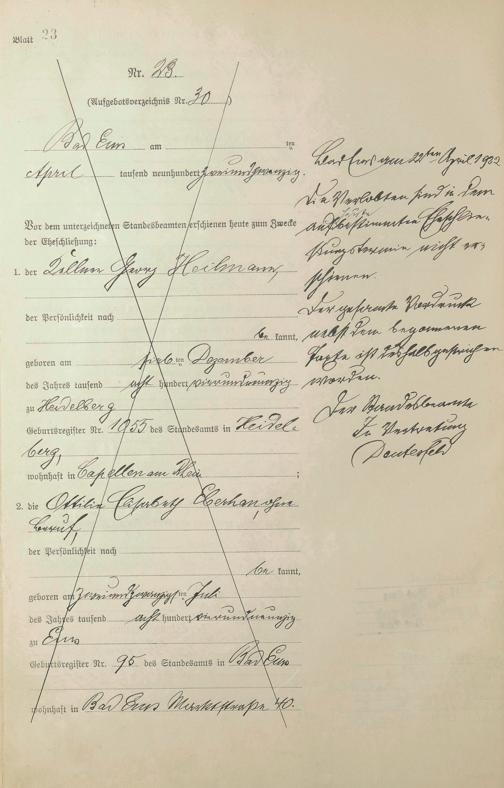 Blatt 23
Nr. 23.
(Aufgebotsverzeichnis Nr. 30)
Bad Ems am ten
April tausend neunhundert zweiundzwanzig.
Vor dem unterzeichneten Standesbeamten erschienen heute zum Zwecke
der Eheschließung:
1. der Kellner Georg Heilmann,
der Persönlichkeit nach
be kannt,
geboren am ten Dezember
des Jahres tausend acht hundert vierundneunzig
zu Heidelberg
Geburtsregister Nr. 1055 des Standesamts in Heidel-
berg,
wohnhaft in Capellen am Rhein ;
2. die Ottilie Elisabeth ohne
Beruf,
der Persönlichkeit nach
be kannt,
geboren am zweiundzwanzigsten Juli
des Jahres tausend acht hundert vierundneunzig
zu Ems
Geburtsregister Nr. 95 des Standesamts in Bad Ems
wohnhaft in Bad Ems Marktstraße 40.
Bad Ems am 22ten April 1922
Die Verlobten sind in dem
auf heute bestimmten Eheschlie-
ßungstermin nicht er-
schienen.
Der gesamte Vordruck
nebst dem begonnenen
Texte ist deshalb gestrichen
worden.
Der Standesbeamte
In Vertretung